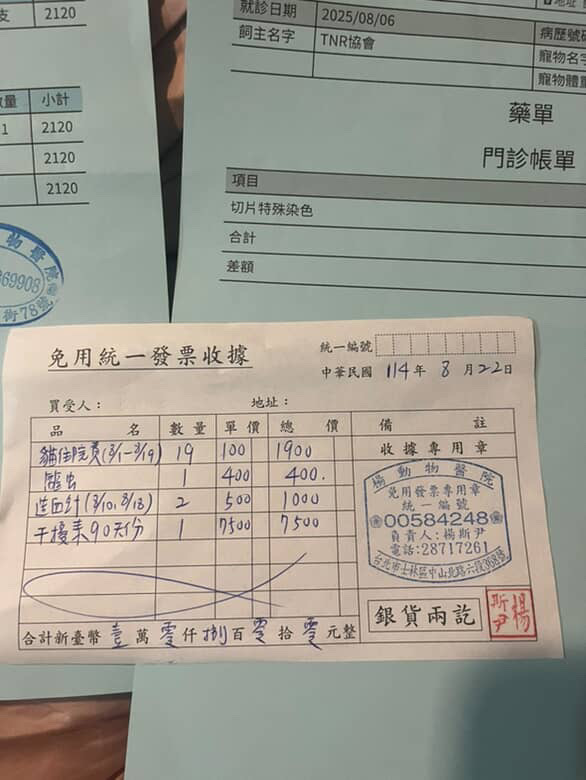 支 2120
數量 小計
1 2120
2120
2120
物醫院
369908
街78號
就診日期 2025/08/06
飼主名字 TNR協會
病歷號碼
寵物名字
寵物體重
藥單
門診帳單
項目
切片特殊染色
合計
差額
免用統一發票收據
統一編號
中華民國 114 年 8 月 22 日
買受人： 地址：
品名 數量 單價 總價 備註
貓住院費(8/1-8/19) 19 100 1900
驅虫 1 400 400.
造血針(8/10, 8/13) 2 500 1000
干擾素90天份 1 7500 7500
合計新臺幣 壹 萬 零 仟 捌 百 零 拾 零 元整
收據專用章
楊動物醫院
免用發票專用章
統一編號
00584248
負責人：楊斯尹
電話：28717261
台北市士林區中山北路六段368號
銀貨兩訖
楊斯尹